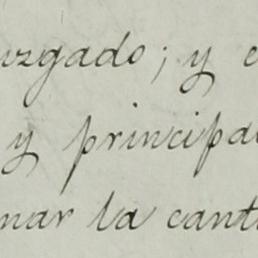 uzgado; y e
y principa
nar la cant